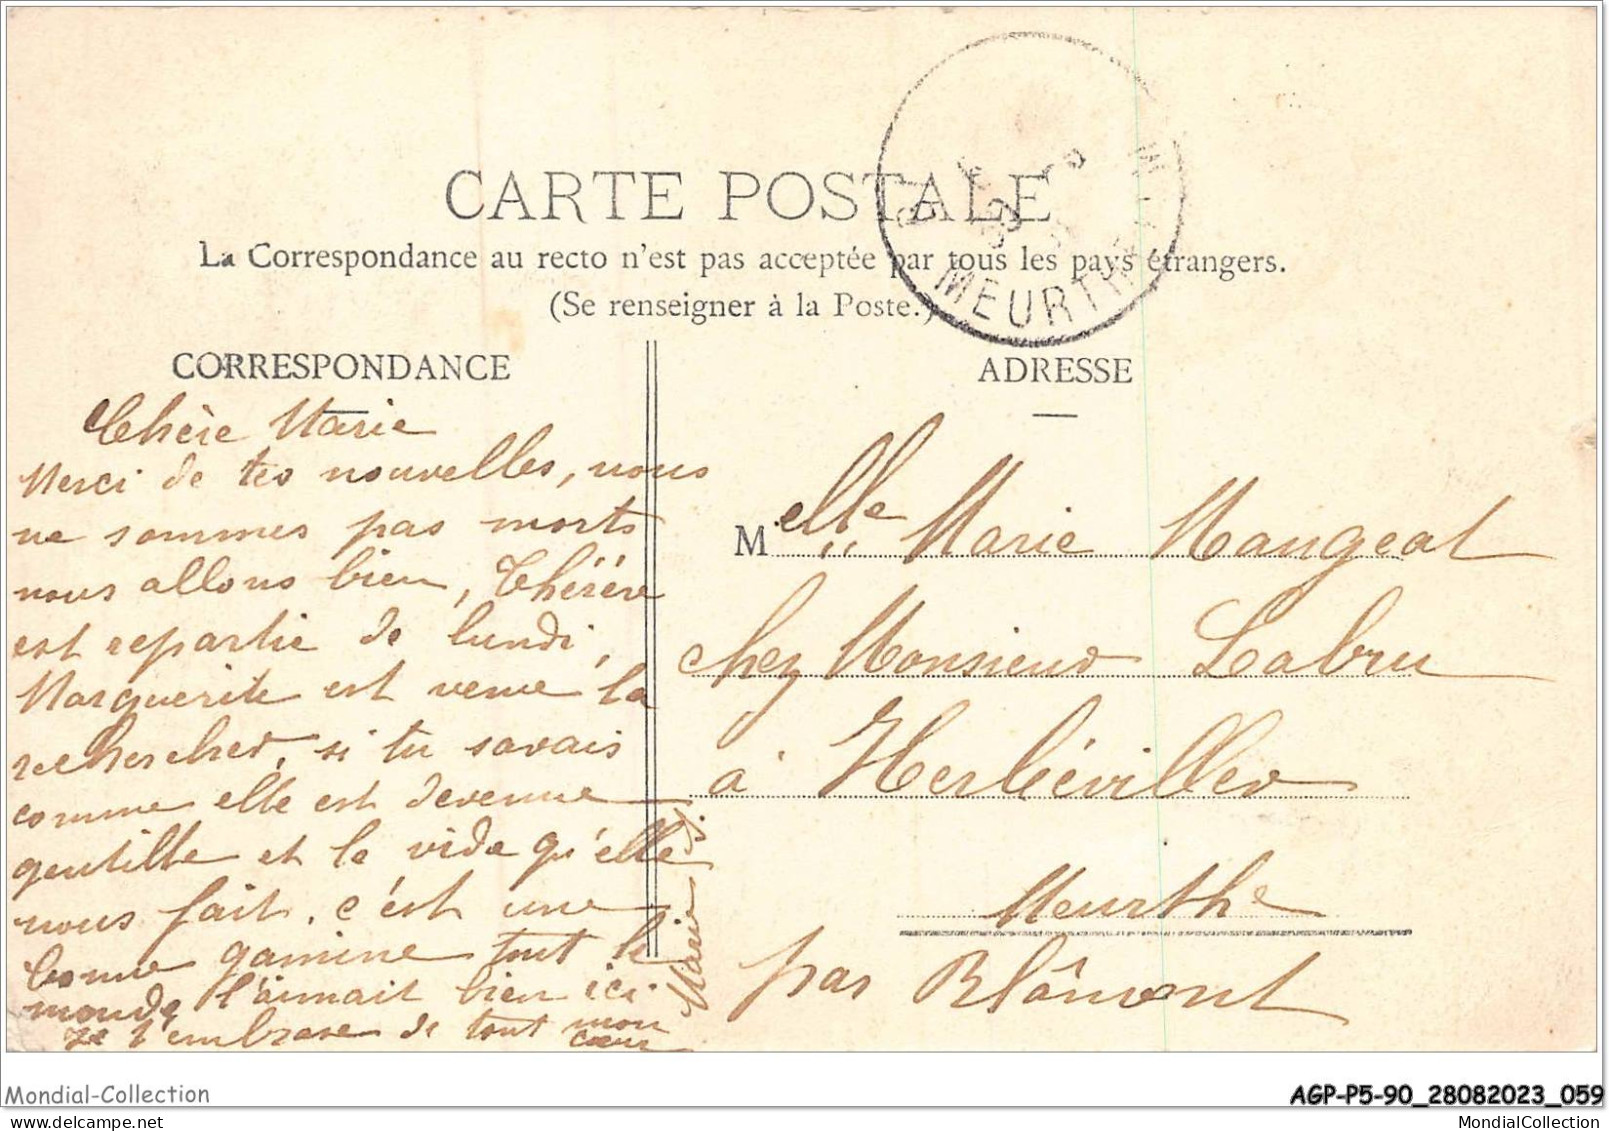 CARTE POSTALE
La Correspondance au recto n'est pas acceptée par tous les pays étrangers.
(Se renseigner à la Poste.)
MEURTHE
CORRESPONDANCE
Chère Marie
Merci de tes nouvelles, nous
ne sommes pas morts
nous allons bien, Thérère
est repartie de lundi,
Marguerite est venue la
rechercher, si tu savais
comme elle est devenue
gentille et le vide qu'elle
nous fait. c'est une
bonne gamine tout le
monde l'aimait bien ici.
Je t'embrasse de tout mon
cœur
Marie
ADRESSE
Melle Marie Mangeat
chez Monsieur Labru
à Herbéviller
Meurthe
par Blâmont
Mondial-Collection
AGP-P5-90_28082023_059
MondialCollection